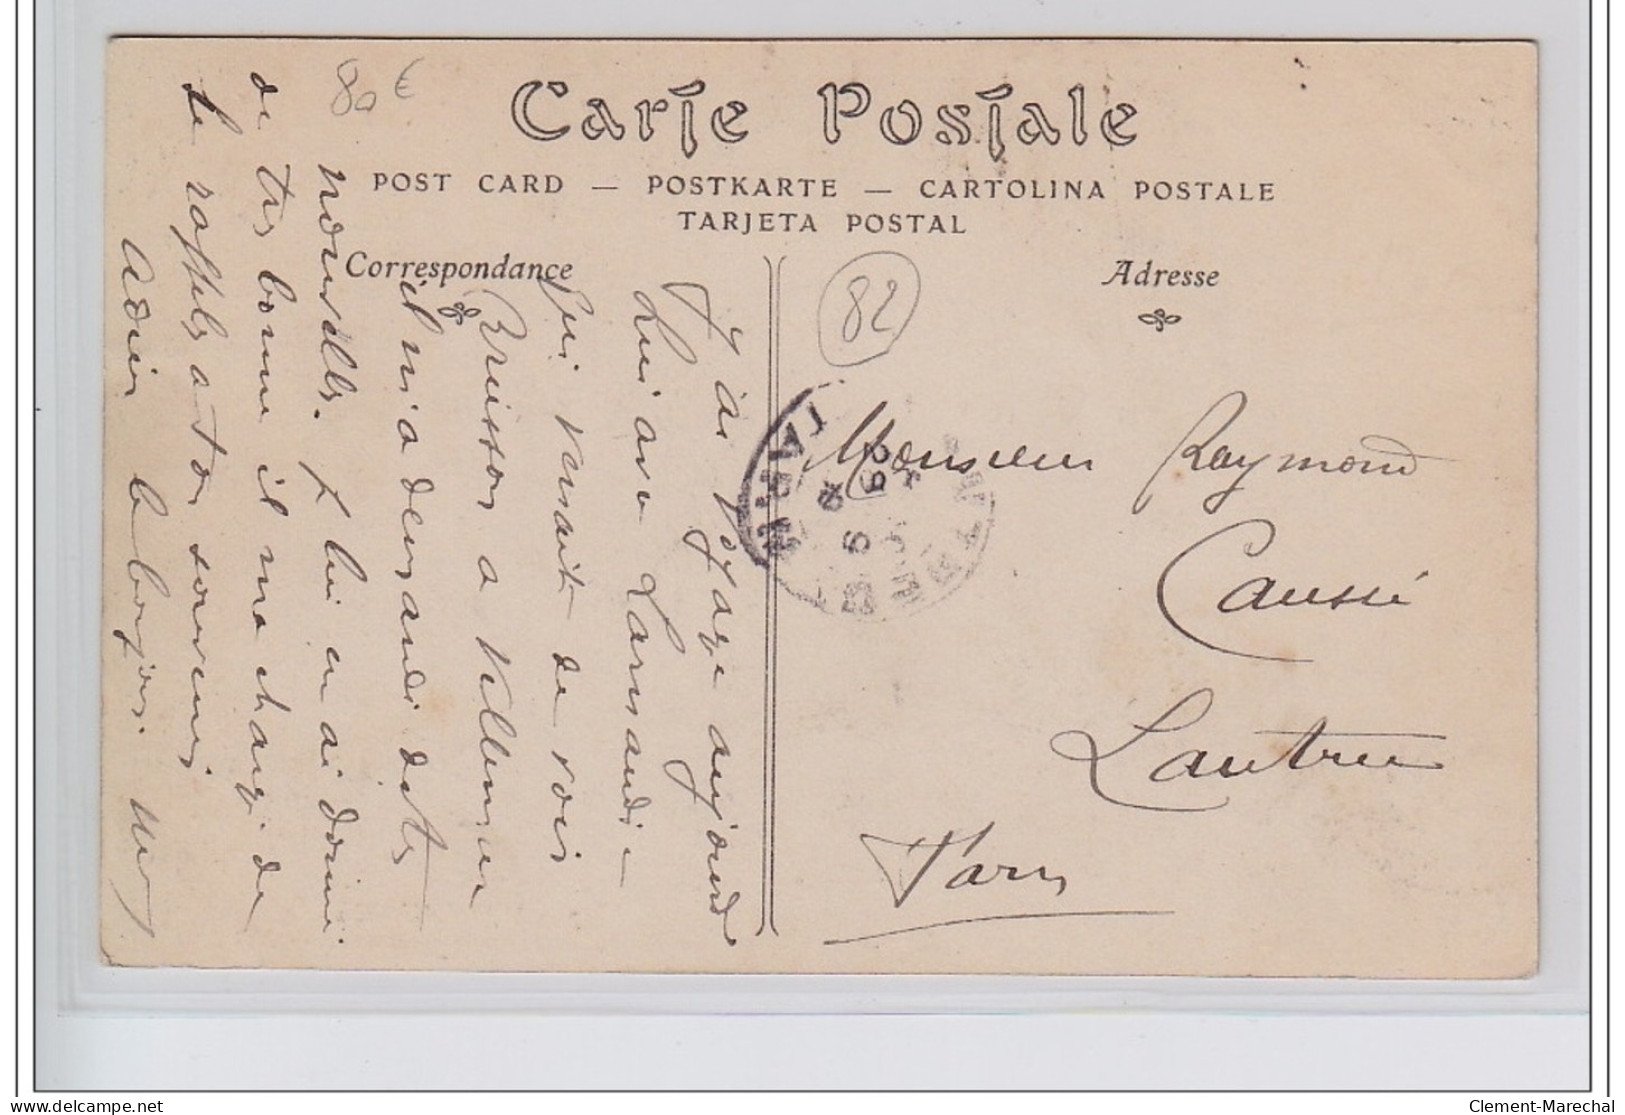 80 €
Carte Postale
POST CARD — POSTKARTE — CARTOLINA POSTALE
TARJETA POSTAL
Correspondance
Adresse
82
J'ai voyage aujourd
hui avec
qui venait de voir
Brisson a Villemur
il m'a demandé de tes
nouvelles. Je lui en ai donné
de tres bonne il ma chargé de
te rappeler a ton souvenir
Adieu le bonjour.
Monsieur Raymond
Caussé
Lautrec
Tarn
TARN
Clement-Marechal